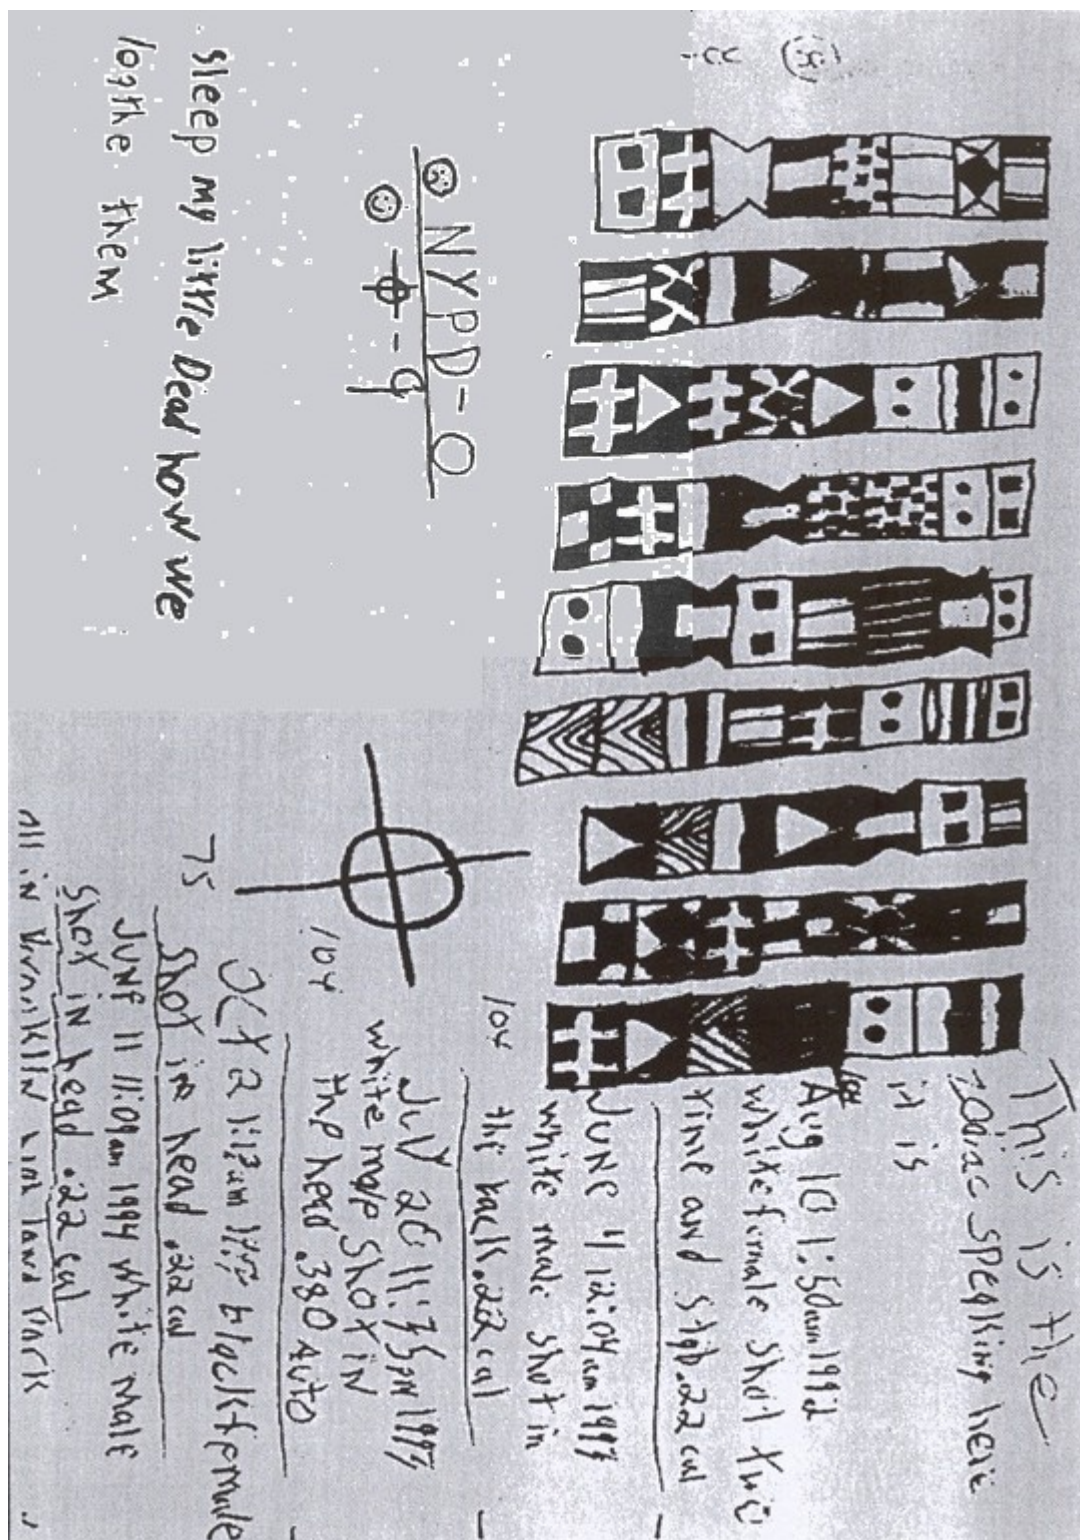 This is the
zodiac speaking here
it is
Aug 10 1:50am 1992
white female shot
time and stab .22 cal
JUNE 4 12:04am 1993
white male shot in
104
the back .22 cal
JULY 20 11:35pm 1993
white male shot in
104
the head .380 AUTO
Oct 2 black female
75
shot in head .22 cal
JUNE 11 11:09am 1994 white male
shot in head .22 cal
All in Park
NYPD-0
sleep my little Dead how we
logthe them